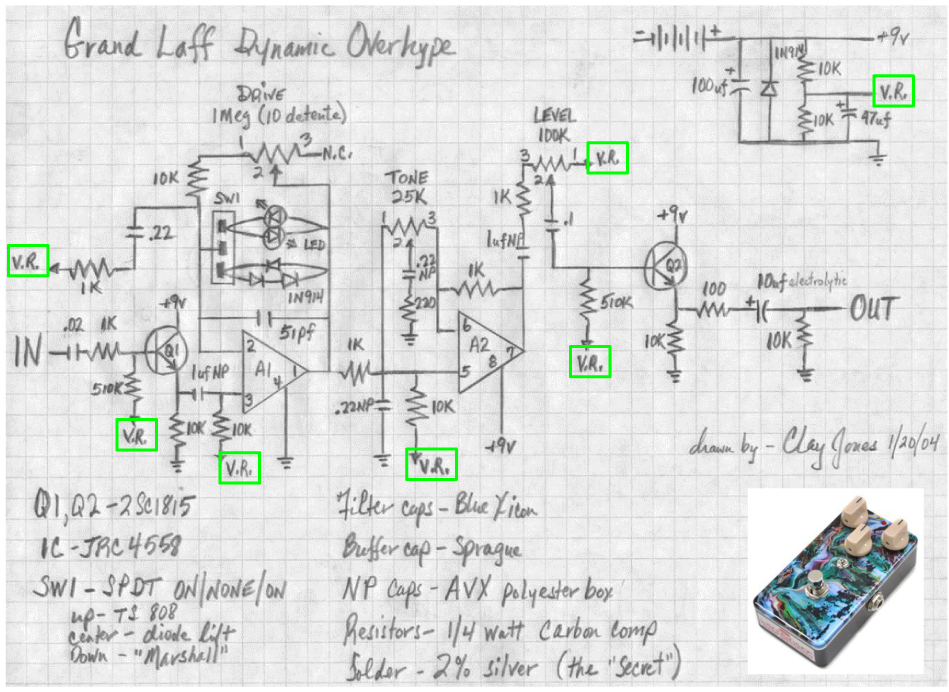 Grand Laff Dynamic Overhype
+9v
1N914
10K
100uf
V.R.
10K
47uf
DRIVE
1Meg (10 detente)
1
3
N.C.
2
10K
SW1
LED
1N914
.22
V.R.
1K
51pf
TONE
25K
1
3
2
.22
NP
220
LEVEL
100K
3
1
V.R.
2
1K
.1
1ufNP
1K
+9v
Q2
510K
V.R.
10K
100
10uf electrolytic
10K
OUT
IN
.02
1K
+9v
Q1
510K
V.R.
1ufNP
10K
10K
V.R.
2
A1
4
1
3
1K
.22NP
10K
V.R.
6
A2
7
8
5
+9v
drawn by - Clay Jones 1/20/04
Q1, Q2 - 2SC1815
IC - JRC 4558
SW1 - SPDT ON/NONE/ON
up - TS 808
center - diode lift
Down - "Marshall"
Filter caps - Blue Xicon
Buffer cap - Sprague
NP caps - AVX polyester box
Resistors - 1/4 watt Carbon comp
Solder - 2% silver (the "Secret")